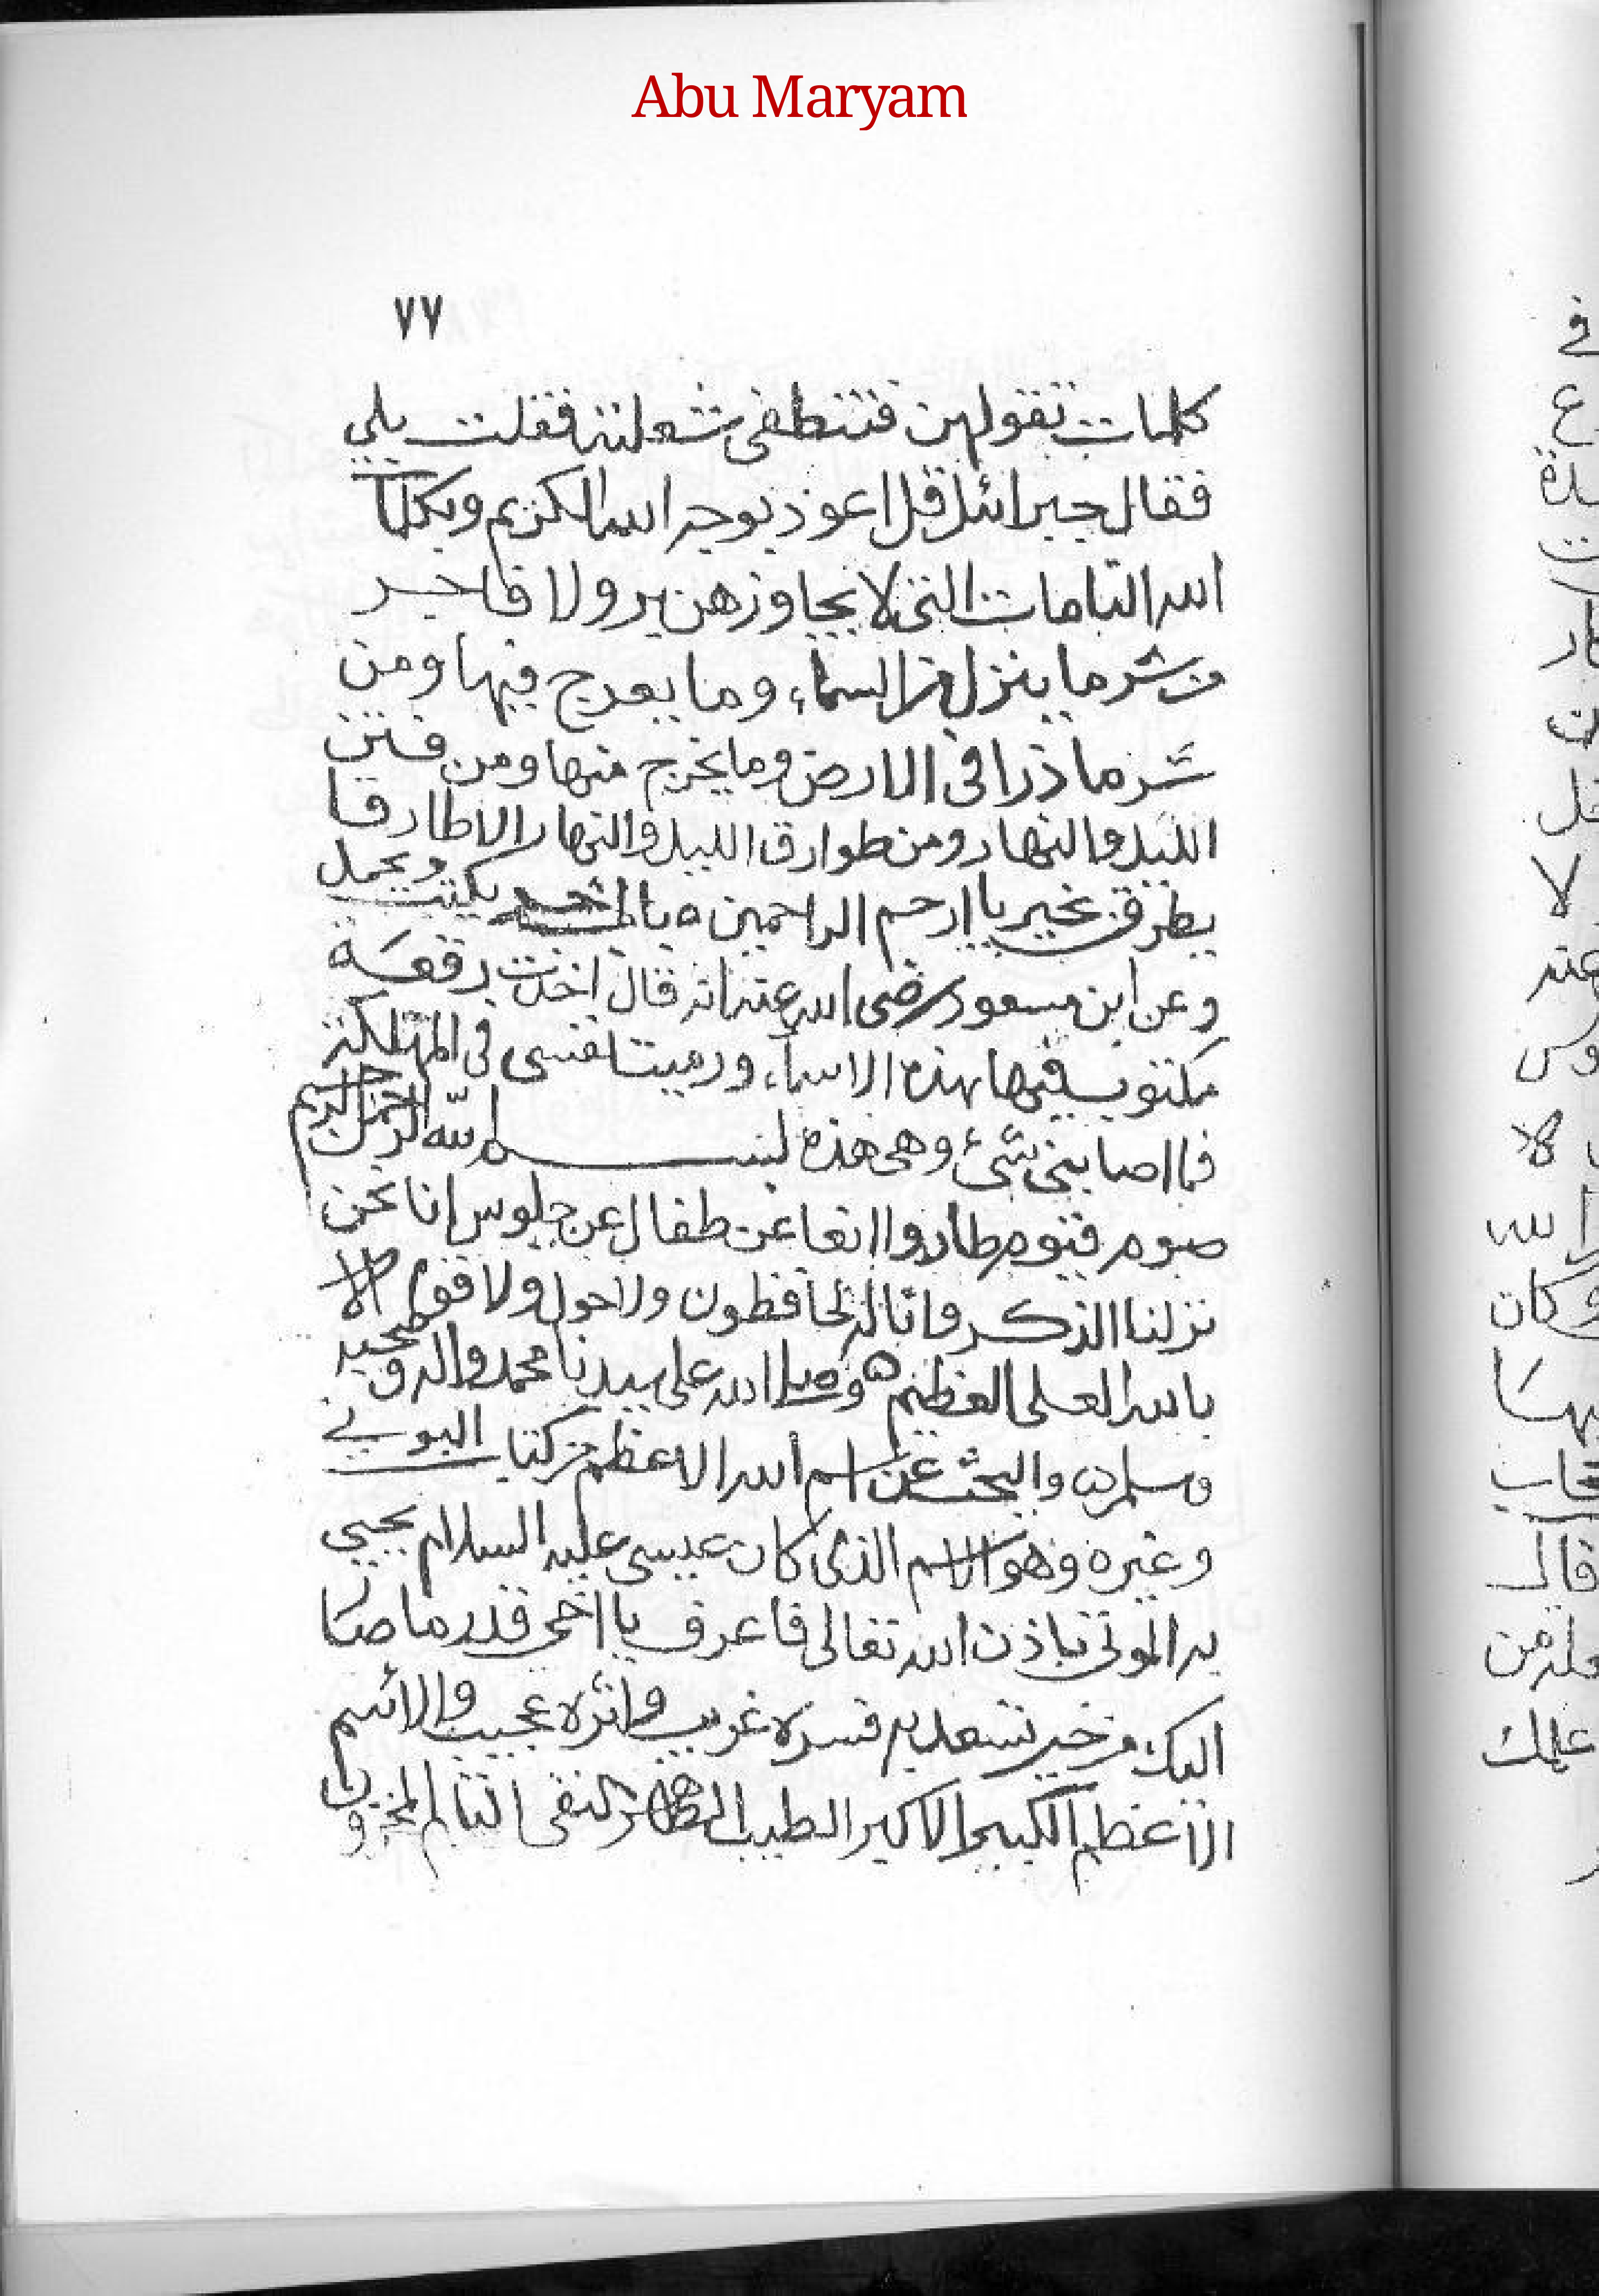 Abu Maryam
٧٧
كلمات تقولهن فتنطفى شعلته فقلت بلى
فقال جبرائل قل اعوذ بوجه الله الكريم وبكلما
الله التامات التى لا يجاوزهن بر ولا فاجر
من شر ما ينزل من السماء، وما يعرج فيها ومن
شر ما ذرا فى الارض وما يخرج منها ومن فتن
الليل والنهار ومن طوارق الليل والنهار الا طارقا
يطرق بخير يا ارحم الراحمين ه يكتب ويحمل
وعن ابن مسعود رضى الله عنه انه قال اخذت رقعة
مكتوب فيها بهذه الاسماء، ورميت نفسى فى المهلكة
فما اصابنى شئ وهى هذه بسم الله الرحمن الرحيم
طفال عن جلوس إنا نحن
نزلنا الذكر وانا له لحافظون ولا حول ولا قوة الا
بالله العلى العظيم ه وصلى الله على سيدنا محمد واله وصحبه
وسلم والبحث عن اسم الله الاعظم من كتاب البونى
وغيره وهو الاسم الذى كان عيسى عليه السلام يحيى
به الموتى باذن الله تعالى فاعرف يا اخى قدر ما صار
اليك من خير تسعد به فسره غريب واثره عجيب والاسم
الاعظم الكبير الاكبر الطيب الطاهر النقى المخزون
في
ع
لا
عند
لا
الله
وكان
قال
علمك